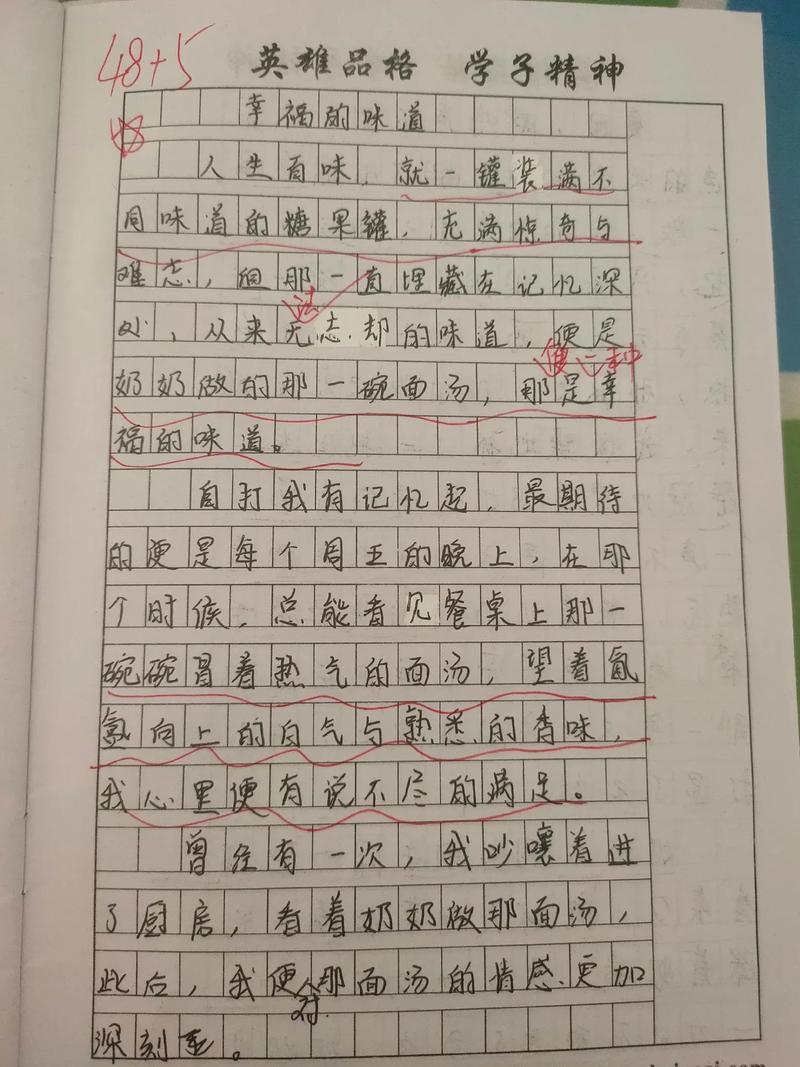 48+5
英雄品格 学子精神
幸福的味道
48
人生百味，就一罐装满不
同味道的糖果罐，充满惊奇与
难忘，但那一直埋藏在记忆深
过
处，从来无忘却的味道，便是
便 一种
奶奶做的那一碗面汤，那是幸
福的味道。
自打我有记忆起，最期待
的便是每个周五的晚上，在那
个时候，总能看见餐桌上那一
碗碗冒着热气的面汤，望着氤
氲向上的白气与熟悉的香味，
我心里便有说不尽的满足。
曾经有一次，我吵嚷着进
了厨房，看着奶奶做那面汤，
此后，我便对那面汤的情感更加
深刻